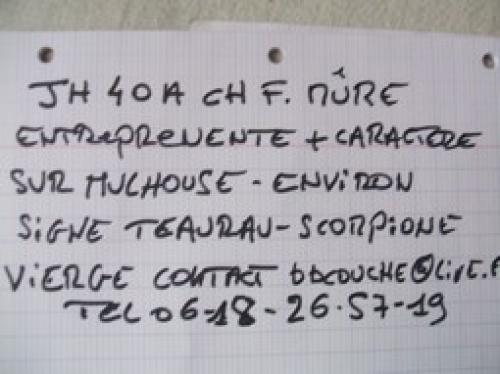 JH 40A CH F. MÛRE
ENTREPRENENTE + CARACTERE
SUR MULHOUSE - ENVIRON
SIGNE TEAURAU - SCORPIONE
VIERGE CONTACT
TEL 06-18-26-57-19